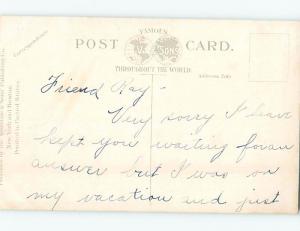 FAMOUS
POST CARD.
& SONS
THROUGHOUT THE WORLD.
Correspondence
Address Only
Friend Ray -
Very sorry I have
kept you waiting for an
answer but I was on
my vacation and just
New York and Boston.